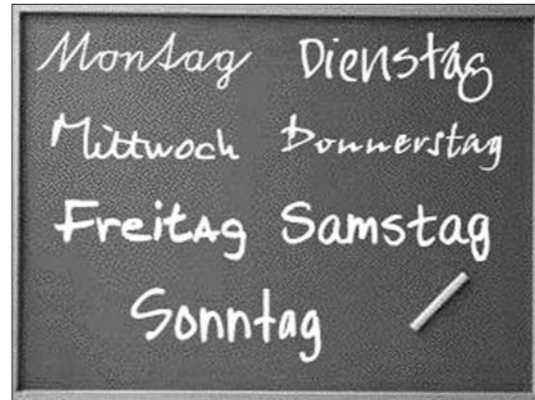 Montag Dienstag
Mittwoch Donnerstag
Freitag Samstag
Sonntag